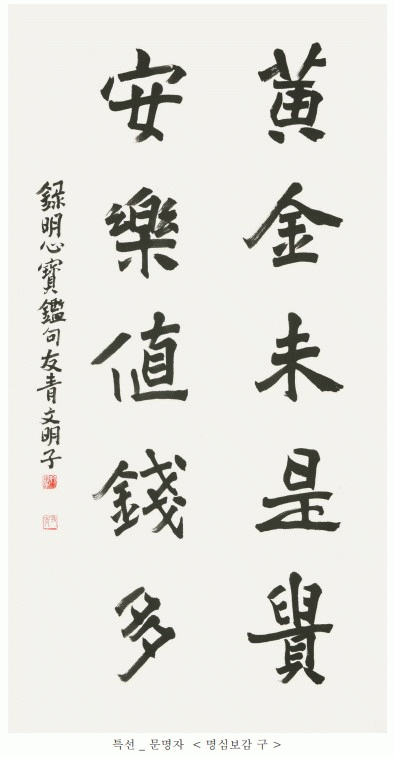 黄金未是貴
安樂値錢多
録明心寶鑑句友青文明子
특선 _ 문명자 < 명심보감 구 >